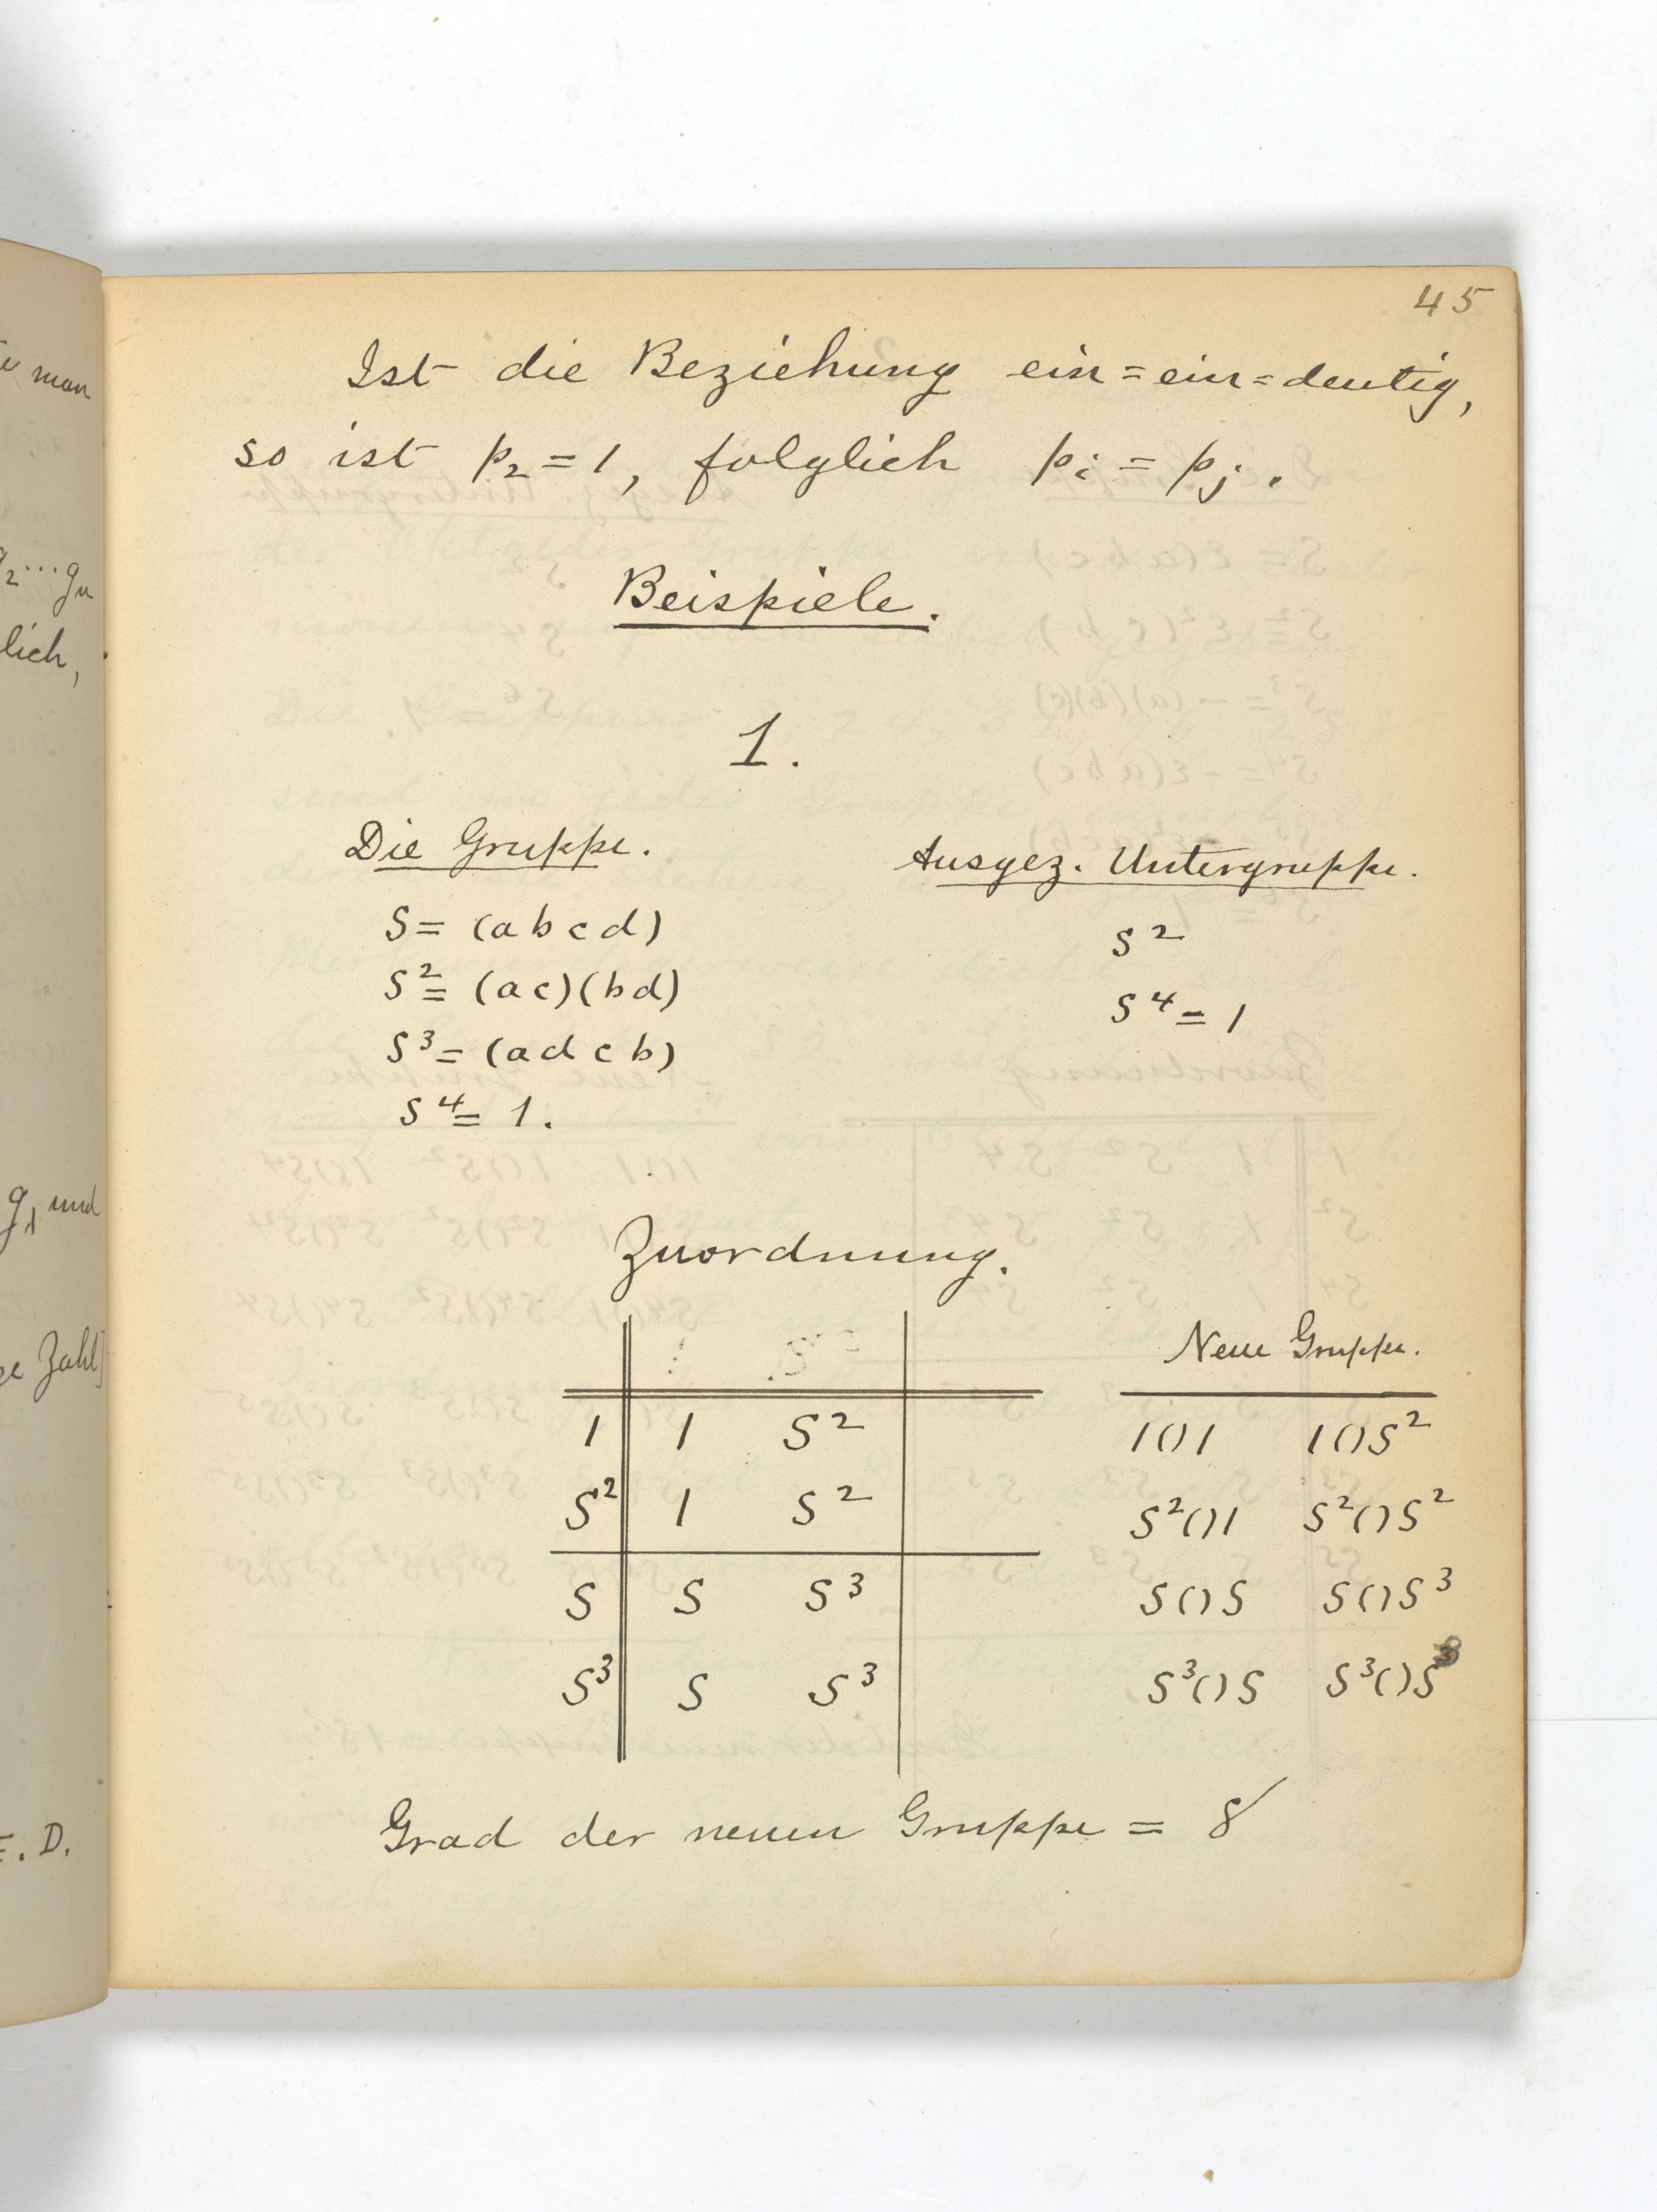 45
Ist die Beziehung ein=ein=deutig,
so ist p₂=1, folglich pᵢ = pⱼ.
Beispiele.
1.
Die Gruppe.
S = (a b c d)
S² = (a c)(b d)
S³ = (a d c b)
S⁴ = 1.
Ausgez. Untergruppe.
S²
S⁴ = 1
Zuordnung.
1 1 S²
S² 1 S²
S S S³
S³ S S³
Neue Gruppe.
1()1 1()S²
S²()1 S²()S²
S()S S()S³
S³()S S³()S³
Grad der neuen Gruppe = 8
man
g₂...gn
lich,
g₁ und
Zahl]
E. D.